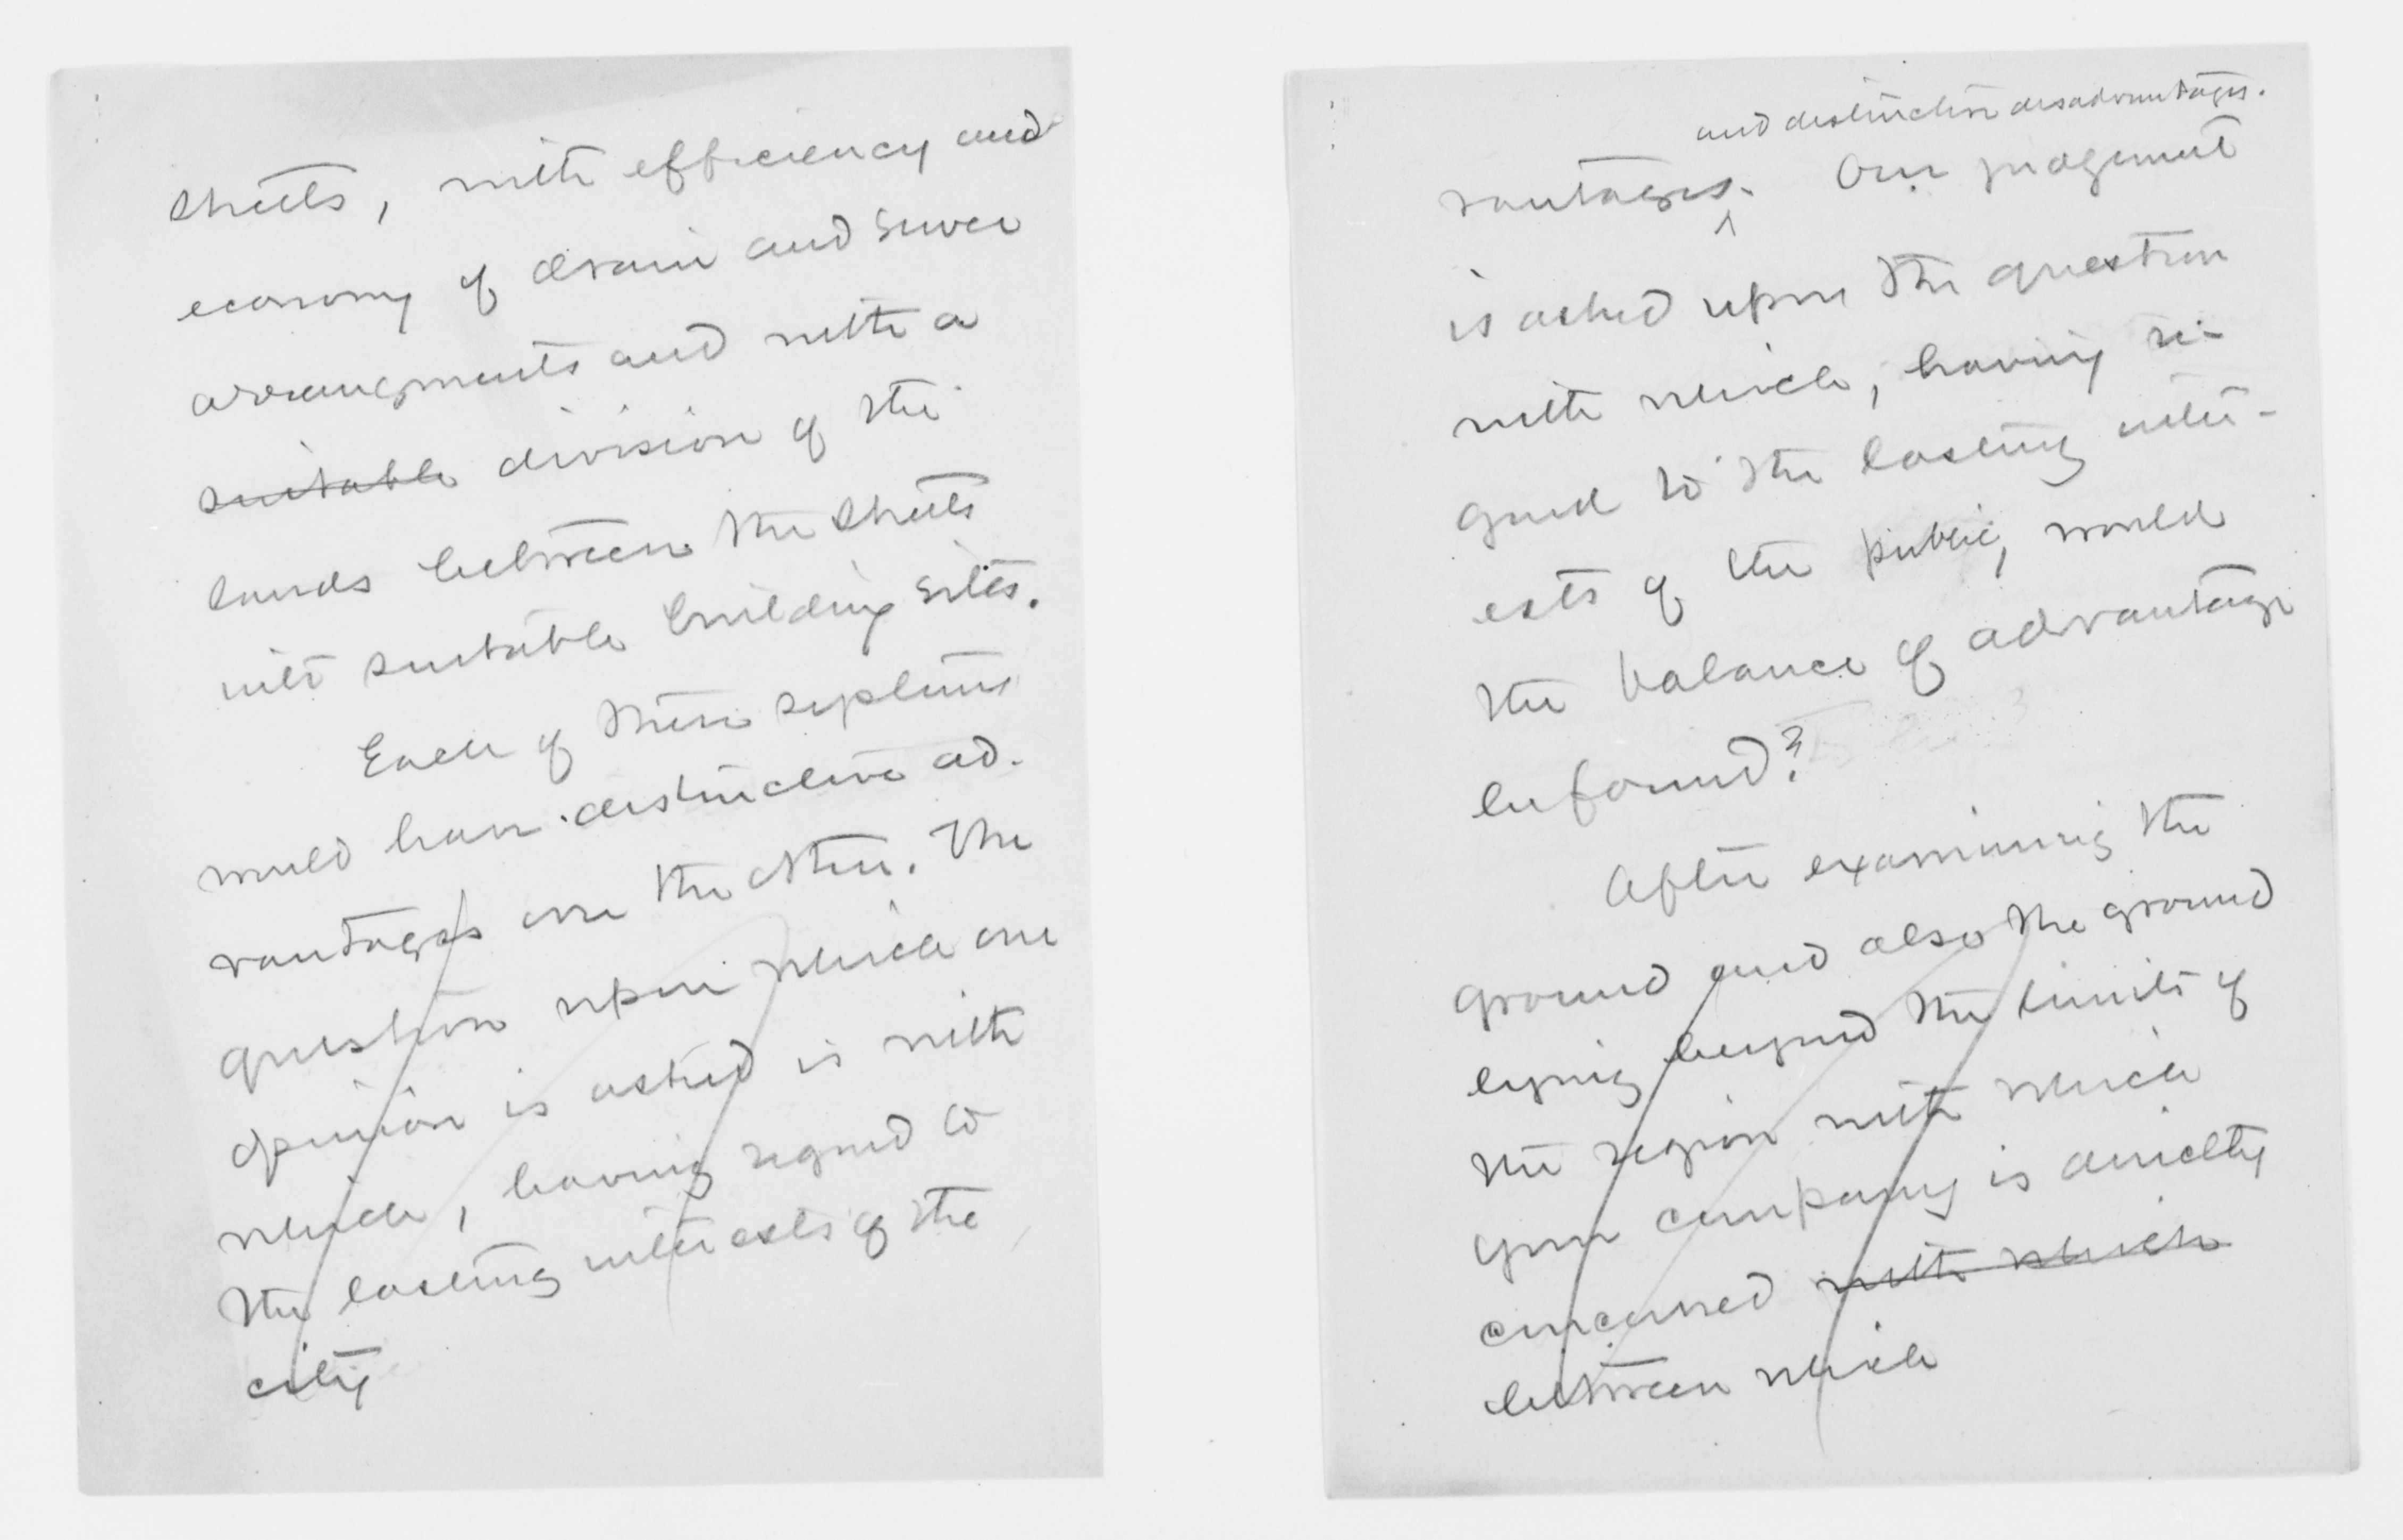 streets, with efficiency and
economy of drain and sewer
arrangments and with a
suitable division of the
lands between the streets
into suitable building sites.
Each of these systems
would have distinctive ad-
vantages over the other. The
question upon which our
opinion is asked is with
which, having regard to
the lasting interests of the
city
and distinctive disadvantages.
vantages. Our judgement
is asked upon the question
with which, having re-
gard to the lasting inter-
ests of the public, would
the balance of advantage
be found?
After examining the
ground and also the ground
lying beyond the limits of
the region with which
your company is directly
concerned with which
between which